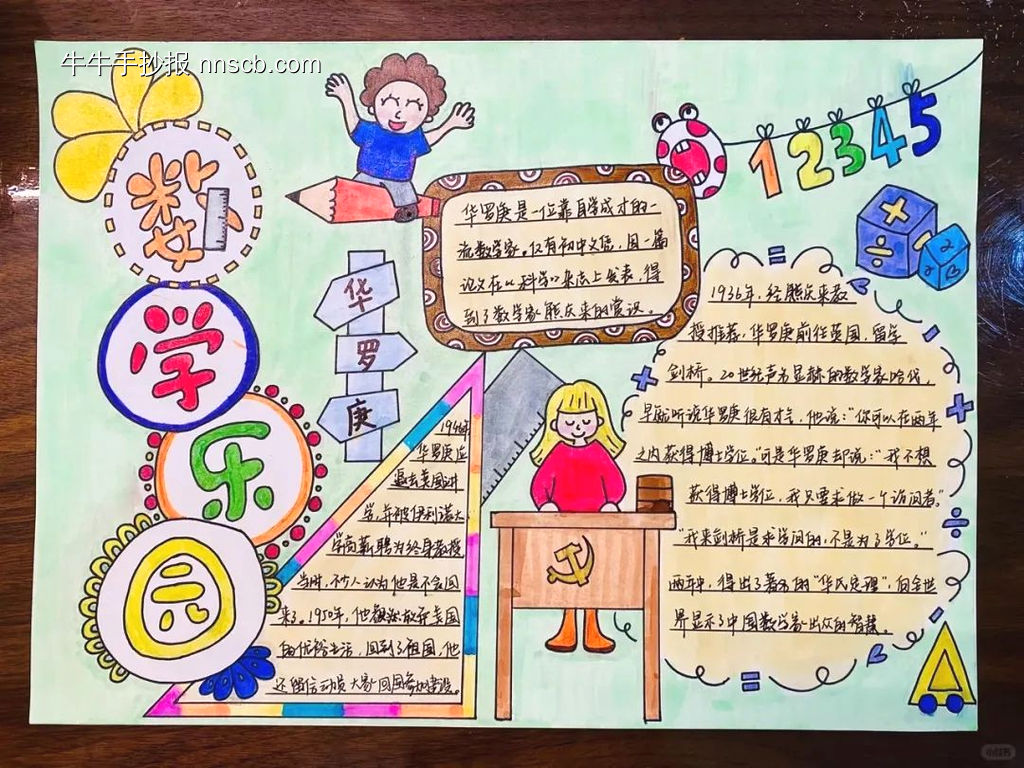 牛牛手抄报 nnscb.com
数
学
乐
园
华
罗
庚
华罗庚是一位靠自学成才的一
流数学家。仅有初中文凭，因一篇
论文在《科学》杂志上发表，得
到了数学家熊庆来的赏识。
1 2 3 4 5
1936年，经熊庆来教
授推荐，华罗庚前往英国，留学
剑桥。20世纪声名显赫的数学家哈代，
早就听说华罗庚很有才气，他说：“你可以在两年
之内获得博士学位。”可是华罗庚却说：“我不想
获得博士学位，我只要求做一个访问者。”
“我来剑桥是求学问的，不是为了学位。”
两年中，得出了著名的“华氏定理”，向全世
界显示了中国数学家出众的智慧。
1946年
华罗庚应
邀去美国讲
学，并被伊利诺大
学高薪聘为终身教授
当时，不少人认为他是不会回
来了。1950年，他毅然放弃美国
的优裕生活，回到了祖国，他
还写信动员大家回国参加建设。
小红书